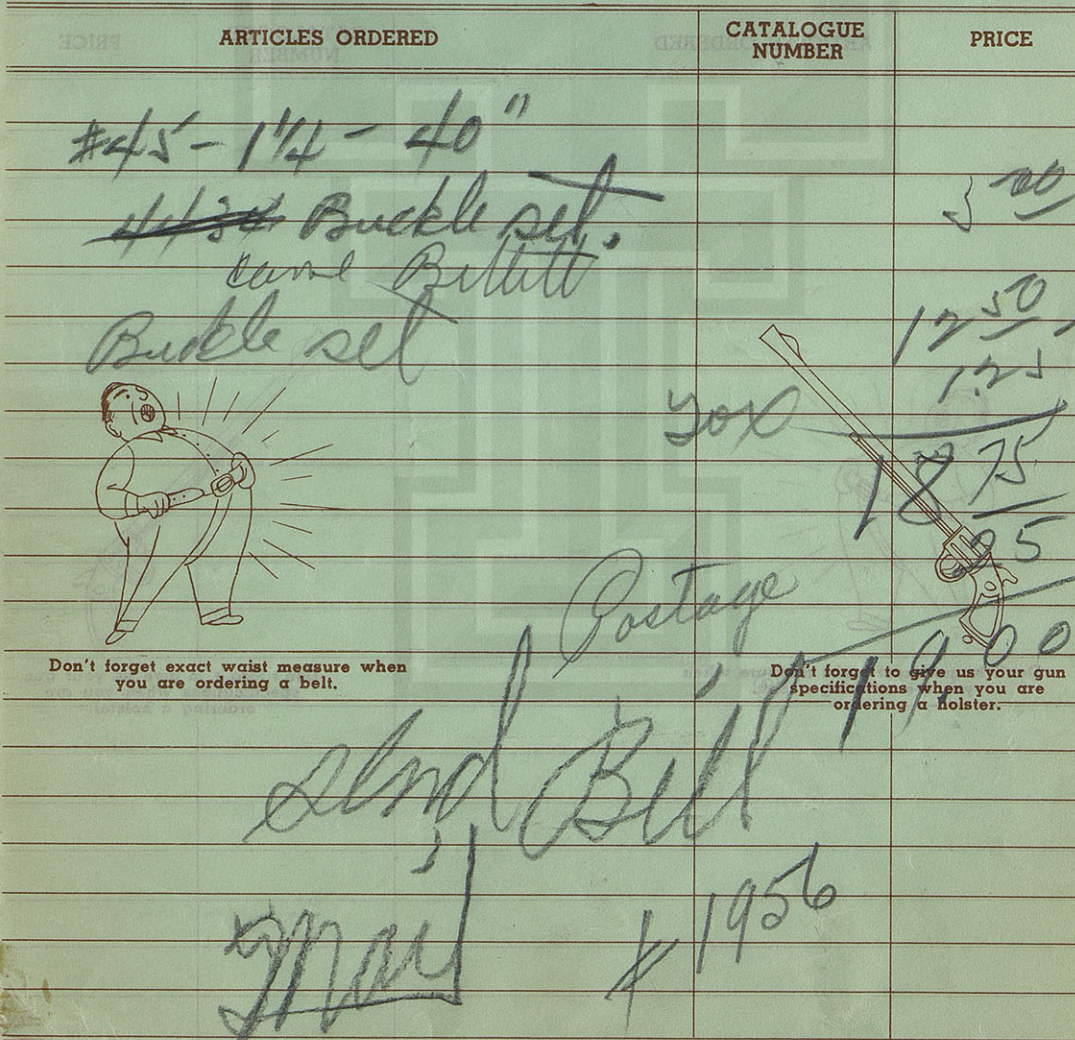 ARTICLES ORDERED CATALOGUE NUMBER PRICE
#45 - 1 1/4 - 40"
Buckle set. 5 00
Buckle set 12 50
1.25
Tax
18 75
25
Postage
19.00
Don't forget exact waist measure when
you are ordering a belt.
Don't forget to give us your gun
specifications when you are
ordering a holster.
Send Bill
# 1956